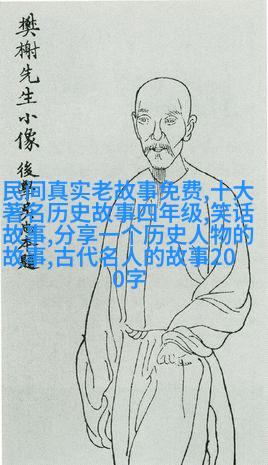 樊榭先生小像
後學
民间真实老故事免费,十大
著名历史故事四年级,笑话
故事,分享一个历史人物的
故事,古代名人的故事20
0字